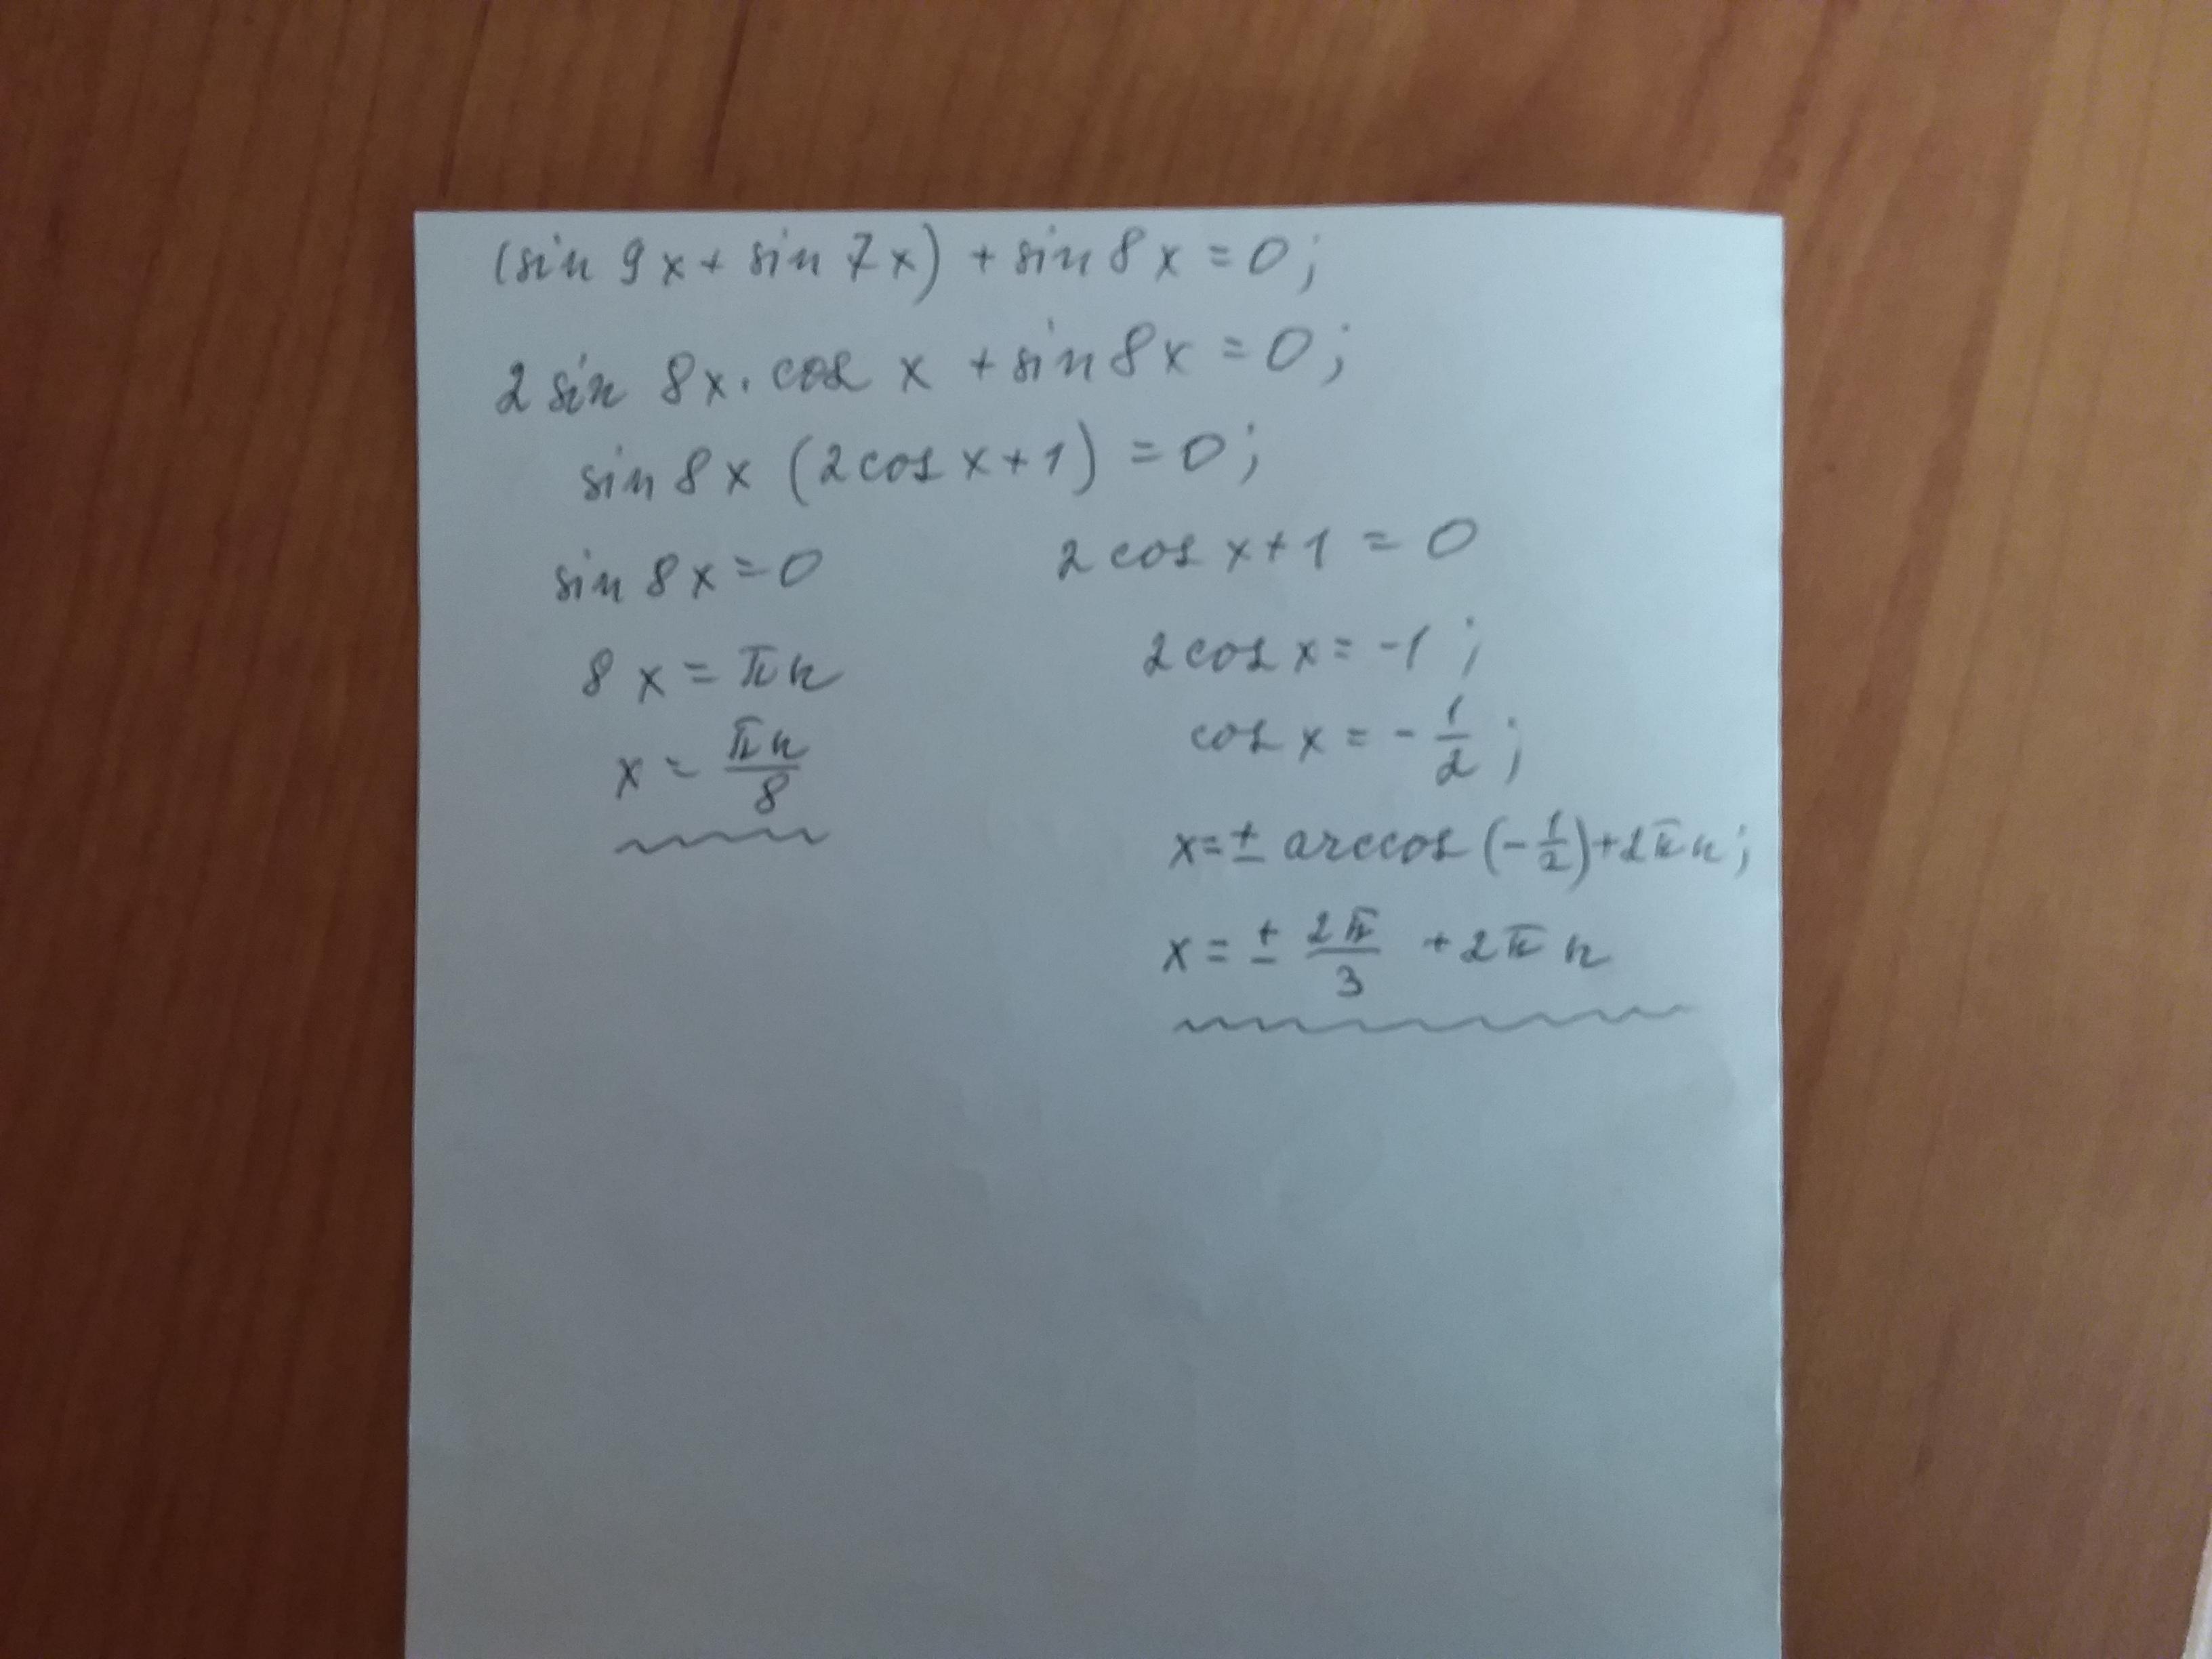 (sin 9x + sin 7x) + sin 8x = 0;
2 sin 8x · cos x + sin 8x = 0;
sin 8x (2cos x + 1) = 0;
sin 8x = 0
8x = πn
x = πn/8
2 cos x + 1 = 0
2 cos x = -1;
cos x = - 1/2;
x = ± arccos (- 1/2) + 2πn;
x = ± 2π/3 + 2πn